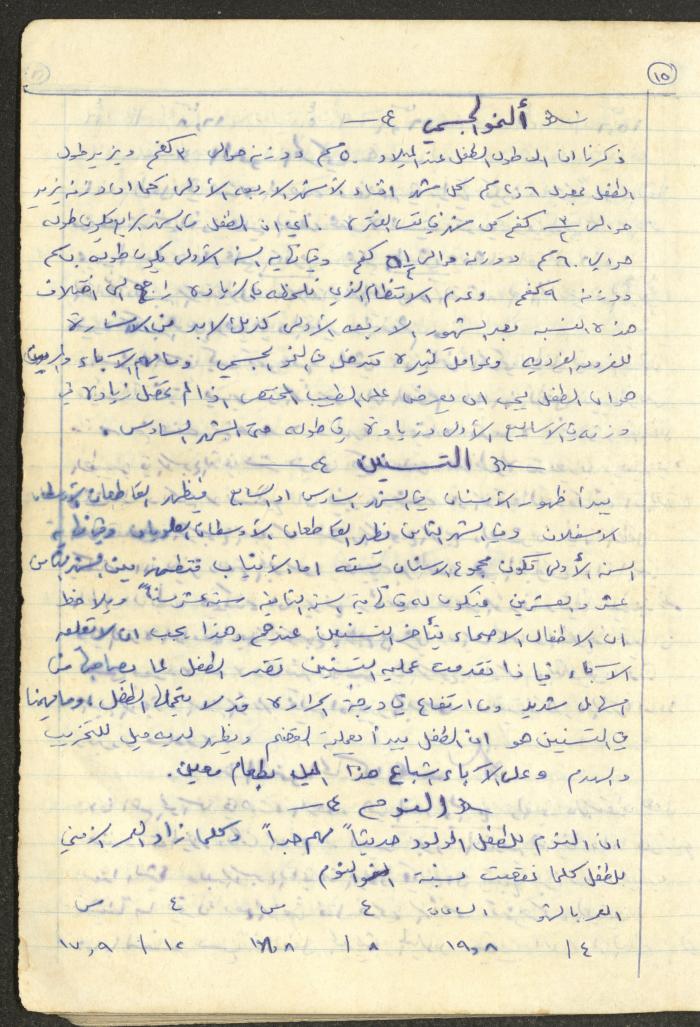 ١٥
ألنمو الجسمي
ذكرنا ان طول الطفل عند الميلاد ٥٠ سم ووزنه حوالي ٣ كغم ويزيد طول
الطفل بمعدل ٢ سم كل شهر اثناء الأشهر الاربعه الأولى كما ان وزنه يزيد
حوالي كغم كل شهر في تلك الفترة . أي ان الطفل في الشهر الرابع يكون طوله
حوالي ٦٠ سم ووزنه حوالي كغم وفي نهاية السنه الأولى يكون طوله سم
ووزنه ٩ كغم وعدم الانتظام الذي نلحظه في الزيادة راجع الى اختلاف
هذه النسبه بعد الشهور الاربعه الأولى كذلك لابد من الاشارة
للفروق الفرديه وعوامل كثيرة تتدخل في النمو الجسمي وما يهم الآباء والمربين
هو ان الطفل يجب ان يعرض على الطبيب المختص اذا لم تحصل زيادة في
وزنه في الاسابيع الأولى وزيادة في طوله حتى الشهر السادس .
التسنين
يبدأ ظهور الأسنان في الشهر السادس او السابع فيظهر القاطعان الأوسطان
الاسفلان وفي الشهر الثامن تظهر القاطعان الأوسطان العلويان وفي نهاية
السنه الأولى تكون مجموع الاسنان ستة اما الأنياب فتظهر بين الشهر الثامن
عشر والعشرين فيكون له في نهاية السنه الثانيه ستة عشر سناً ويلاحظ
ان الاطفال الاصحاء يتأخر التسنين عندهم وهذا يجب ان لا تقلقه
الآباء فاذا تقدمت عمليه التسنين تضر الطفل لما يصاحبها من
اسهال شديد ومن ارتفاع في درجة الحرارة قد لا يتحملها الطفل ، وما يهمنا
في التسنين هو ان الطفل يبدأ بعملية القضم ويظهر لديه ميل للتخريب
والهدم وعلى الآباء اشباع هذا الميل بطعام معين .
النوم
ان النوم للطفل المولود حديثاً مهم جداً وكلما زاد العمر الزمني
للطفل كلما نقصت نسبة النوم
العمر بالشهر الساعات ع س ع س
١٤ ١٩,٨ ٨ ١٨,٨ ١٢ ١٧,٩